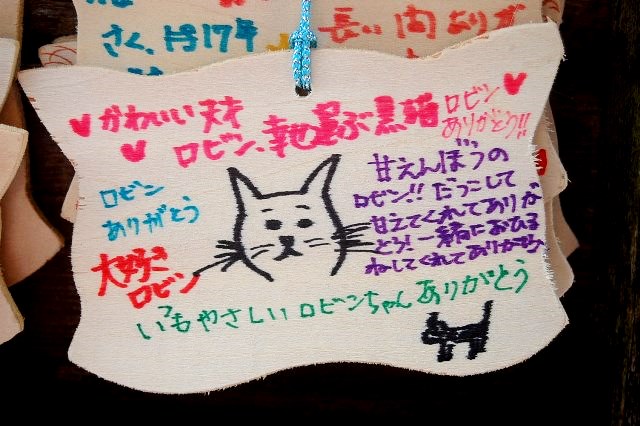 長い間ありが
さく、トラ17年
かわいい天才
ロビン、幸せ運ぶ黒猫
ロビン
ありがとう!!
ロビン
ありがとう
大好き
ロビン
甘えんぼうの
ロビン!! だっこして
甘えてくれてありが
とう! 一緒におひる
ねしてくれてありがとう
いつもやさしいロビンちゃんありがとう